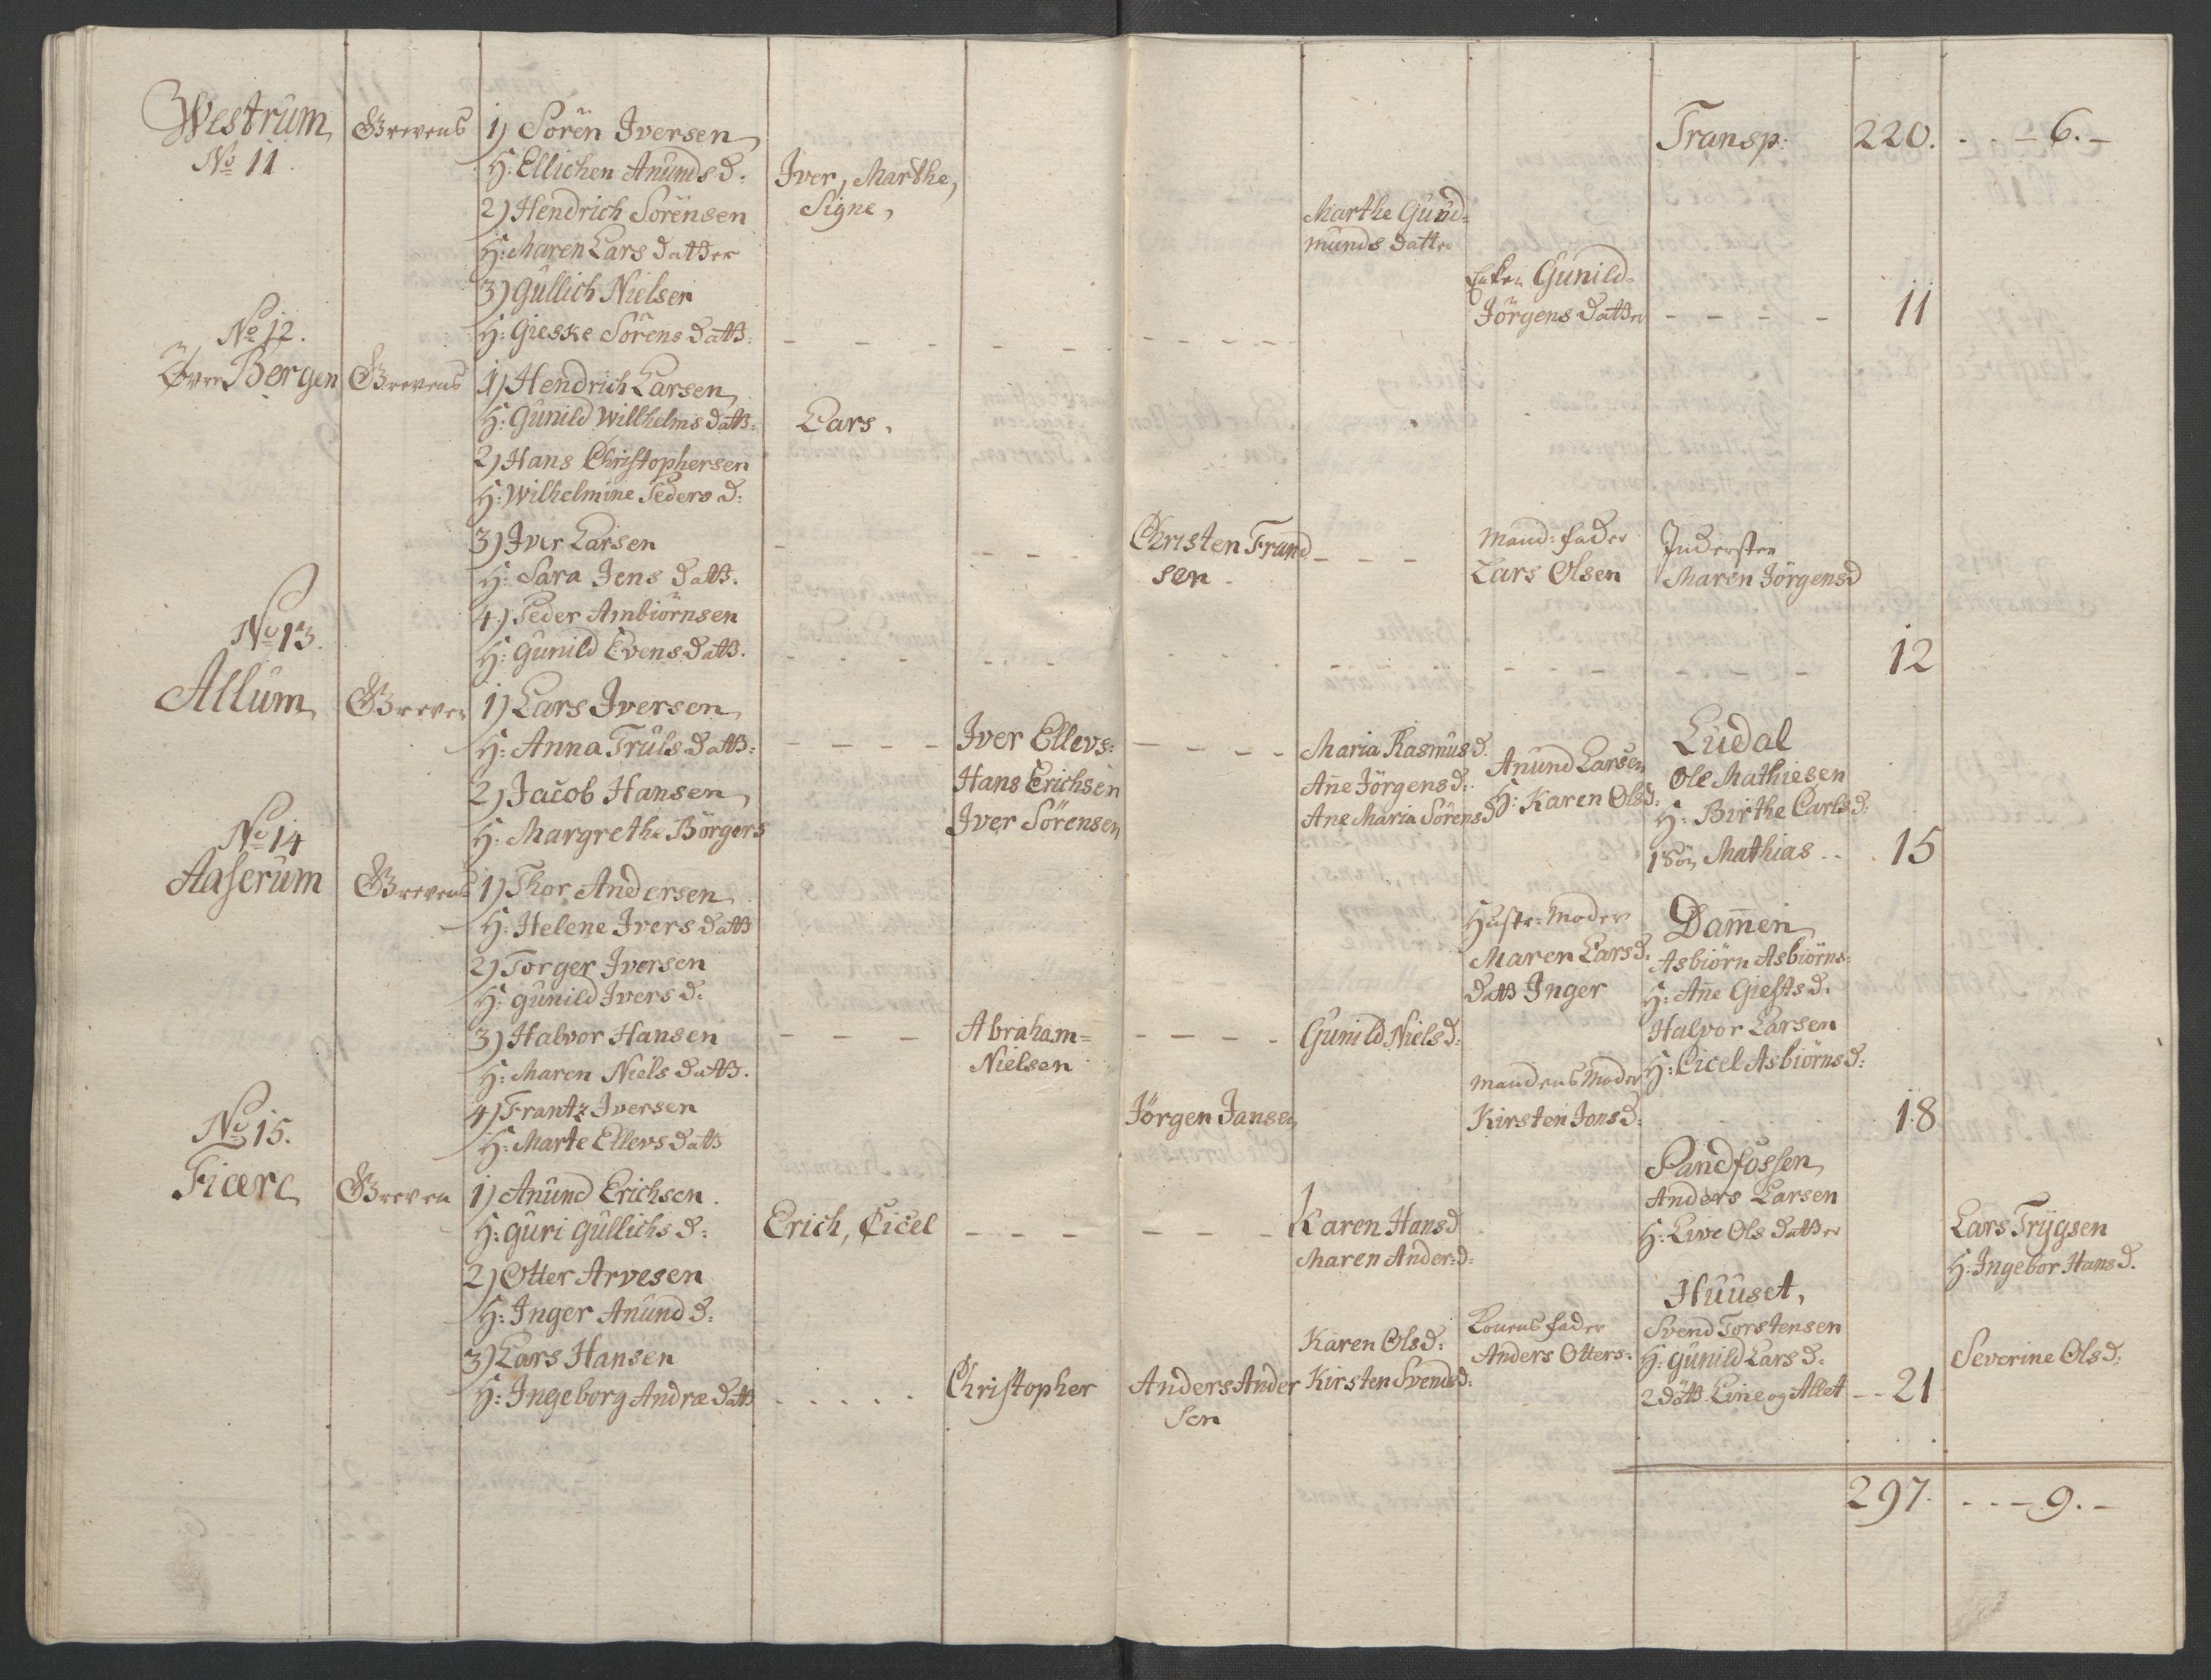 Westrum
No 11
Grevens
1) Sören Iversen
H: Ellichen Anunds d:
2) Hendrich Sörensen
H: Maren Lars datter
3) Gullich Nielsen
H: Gieske Sörens datt:
Iver, Marthe,
Signe,
Marthe Gud=
munds datter
Enken Gunild=
Jörgens datter - - - -
Transp:
220. - - - 6. -
11
No 12.
Övre Bergen
Grevens
1) Hendrich Larsen
H: Gunild Willhelms datt:
2) Hans Christophersen
H: Wilhelmine Peders d:
3) Iver Larsen
H: Sara Jens datt.
4) Peder Ambiörnsen
H: Gunild Evens datt.
Lars,
Christen Frand
sen
Mand: fader
Lars Olsen
Indersten
Maren Jörgensd
12
No 13.
Allum
Greven
1) Lars Iversen
H: Anna Truls datt:
2) Jacob Hansen
H: Margrethe Börgers
Iver Ellevs:
Hans Erichsen
Iver Sörensen
Maria Rasmus d.
Ane Jörgens d:
Ane Maria Sörens d
Anund Larsen
H: Karen Ols d:
Ludal
Ole Mathiesen
H: Birthe Carls d:
1 Sön Mathias . . . 15
No 14
Aaserum
Grevens
1) Thor Andersen
H: Helene Ivers datt
2) Torger Iversen
H: gunild Ivers d:
3) Halvor Hansen
H: Maren Niels datt.
4) Frantz Iversen
H: Marte Ellevs datt
Abraham=
Nielsen
Jörgen Jansen
Gunild Niels d:
Hustr: Moder
Maren Lars d.
datt Inger
Mandens Moder
Kirsten Jons d:
Dam̄en
Asbiörn Asbiörns:
H: An̄e Giests d.
Halvor Larsen
H: Cicel Asbiörns d:
18
No 15.
Ficere
Greven
1) Anund Erichsen.
H: guri Gullichs d:
2) Otter Arvesen
H: Inger Anund d:
3) Lars Hansen
H: Ingeborg Andræ datt
Erich, Cicel
Christopher
Anders Ander
sen
Karen Hans d
Maren Ander: d:
Karen Ols d:
Kirsten Svends d:
Konens fader
Anders Otters:
Sandfossen
Anders Larsen
H: Live Ols datter
Huuset,
Svend Torstensen
H: gunild Lars d.
2 dött. Line og Allet - - 21
Lars Trygsen
H: Ingebor Hans d.
Severine Ols d:
297. - - - 9. -